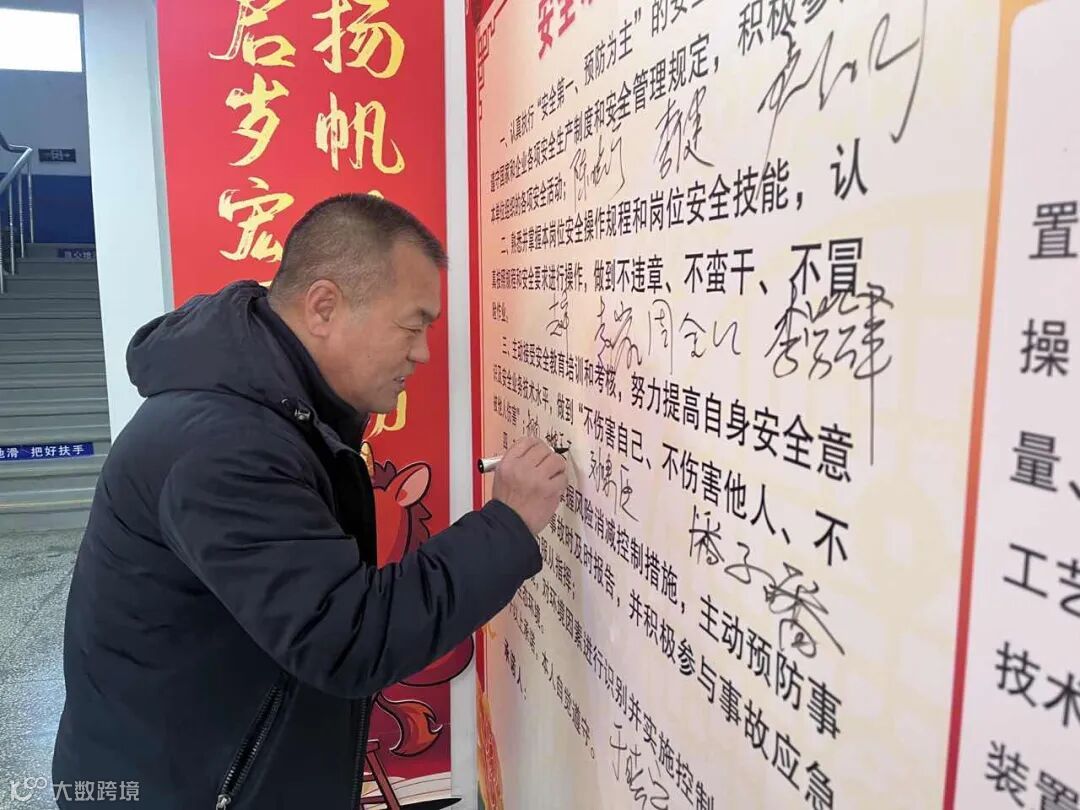 扬帆
启岁宏
地滑 把好扶手
安全
一、认真执行“安全第一、预防为主”的安全
遵守国家和企业各项安全生产制度和安全管理规定，积极参
本单位组织的各项安全活动；
二、熟悉并掌握本岗位安全操作规程和岗位安全技能，认
真按照规程和安全要求进行操作，做到不违章、不蛮干、不冒
险作业。
周全
三、主动接受安全教育培训和考核，努力提高自身安全意
识及安全业务技术水平，做到“不伤害自己、不伤害他人、不
被他人伤害”；
掌握风险消减控制措施，主动预防事
事故时及时报告，并积极参与事故应急
服从指挥；
对环境因素进行识别并实施控制
态环境。
以上承诺，本人自觉遵守。
承诺人：
置
操
量、
工艺
技术
装置
大数跨境